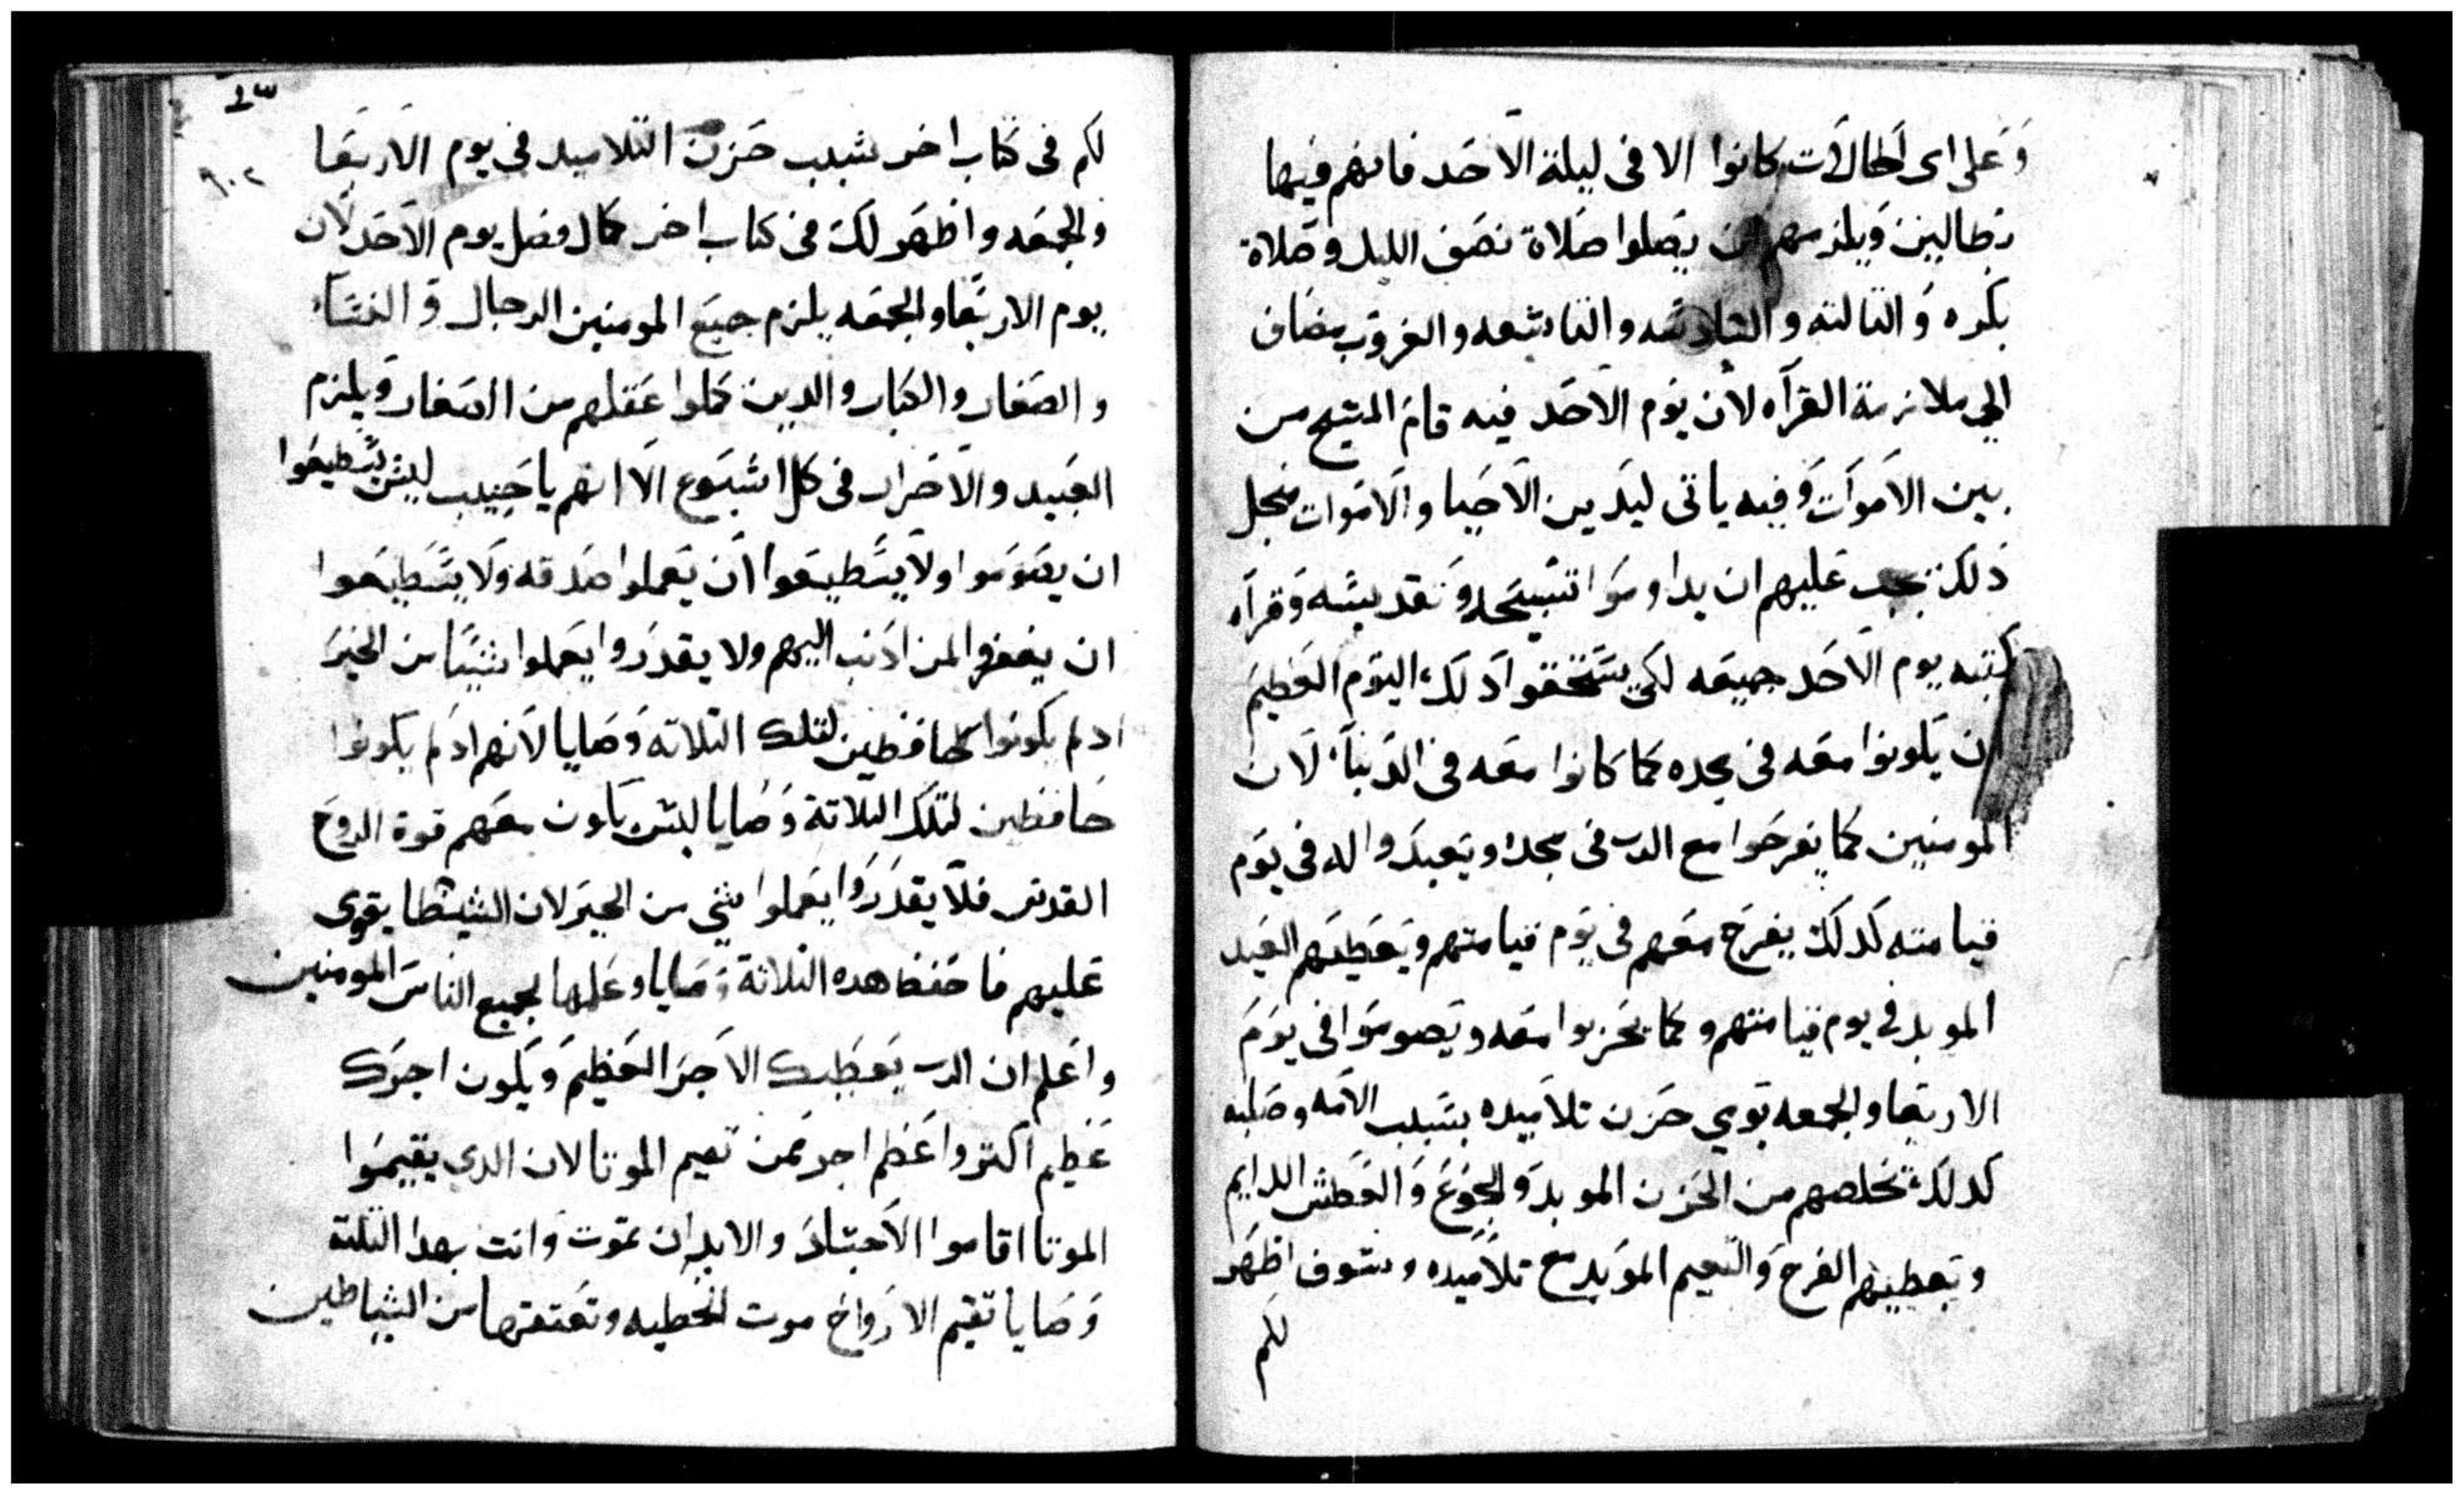 وعلى اى الحالات كانوا الا فى ليلة الاحد فانهم فيها
بطالين ويلزمهم ان يصلوا صلاة نصف الليل وصلاة
بكره والتالته والسادسه والتاسعه والغروب مضاف
الي ملازمة القرآه لان يوم الاحد فيه قام المسيح من
بين الاموات وفيه ياتى ليدين الاحيا والاموات منجل
دلك يجب عليهم ان يداوموا تسبيحه وتقديسه وقرآه
كتبه يوم الاحد جميعه لكى يستحقوا دلك اليوم العظيم
ان يكونوا معه فى مجده كما كانوا معه فى الدنيا لان
المومنين كما يفرحوا مع الرب فى مجده ويعيدوا له فى يوم
قيامته كدلك يفرح معهم فى يوم قيامتهم ويعطيهم العيد
الموبد فى يوم قيامتهم وكما يحزنوا معه ويصوموا فى يوم
الاربعا والجمعه بوي حزن تلاميده بسبب الامه وصلبه
كدلك يخلصهم من الحزن الموبد والجوع والعطش الدايم
ويعطيهم الفرح والنعيم الموبد مع تلاميده وسوف اظهر
لكم
٩٠٢
لكم فى كتاب اخر سبب حزن التلاميد فى يوم الاربعا
والجمعه واظهر لك فى كتاب اخر كمال فضل يوم الاحد لان
يوم الاربعا والجمعه يلزم جميع المومنين الرجال والنسآء
والصغار والكبار والدين كملوا عقلهم من الصغار ويلزم
العبيد والاحرار فى كل اسبوع الا انهم يا حبيب ليس يسطيعوا
ان يصوموا ولا يسطيعوا ان يعملوا صدقه ولا يسطيعوا
ان يغفروا لمن ادنب اليهم ولا يقدروا يعملوا شيئا من الخير
اد لم يكونوا حافظين لتلك التلاته وصايا لانهم اد لم يكونوا
حافظين لتلك التلاتة وصايا ليس يكون معهم قوة الروح
القدس فلا يقدروا يعملوا شي من الخير لان الشيطا يقوى
عليهم فاحفظ هده التلاتة وصايا وعلمها لجميع الناس المومنين
واعلم ان الرب يعطيك الاجر العظيم ويكون اجرك
عظيم اكتر واعظم اجر ممن تقيم الموتا لان الدي يقيموا
الموتا اقاموا الاجساد والابدان تموت وانت بهدا التلته
وصايا تقيم الارواح موت الخطيه وتعتقها من الشياطين